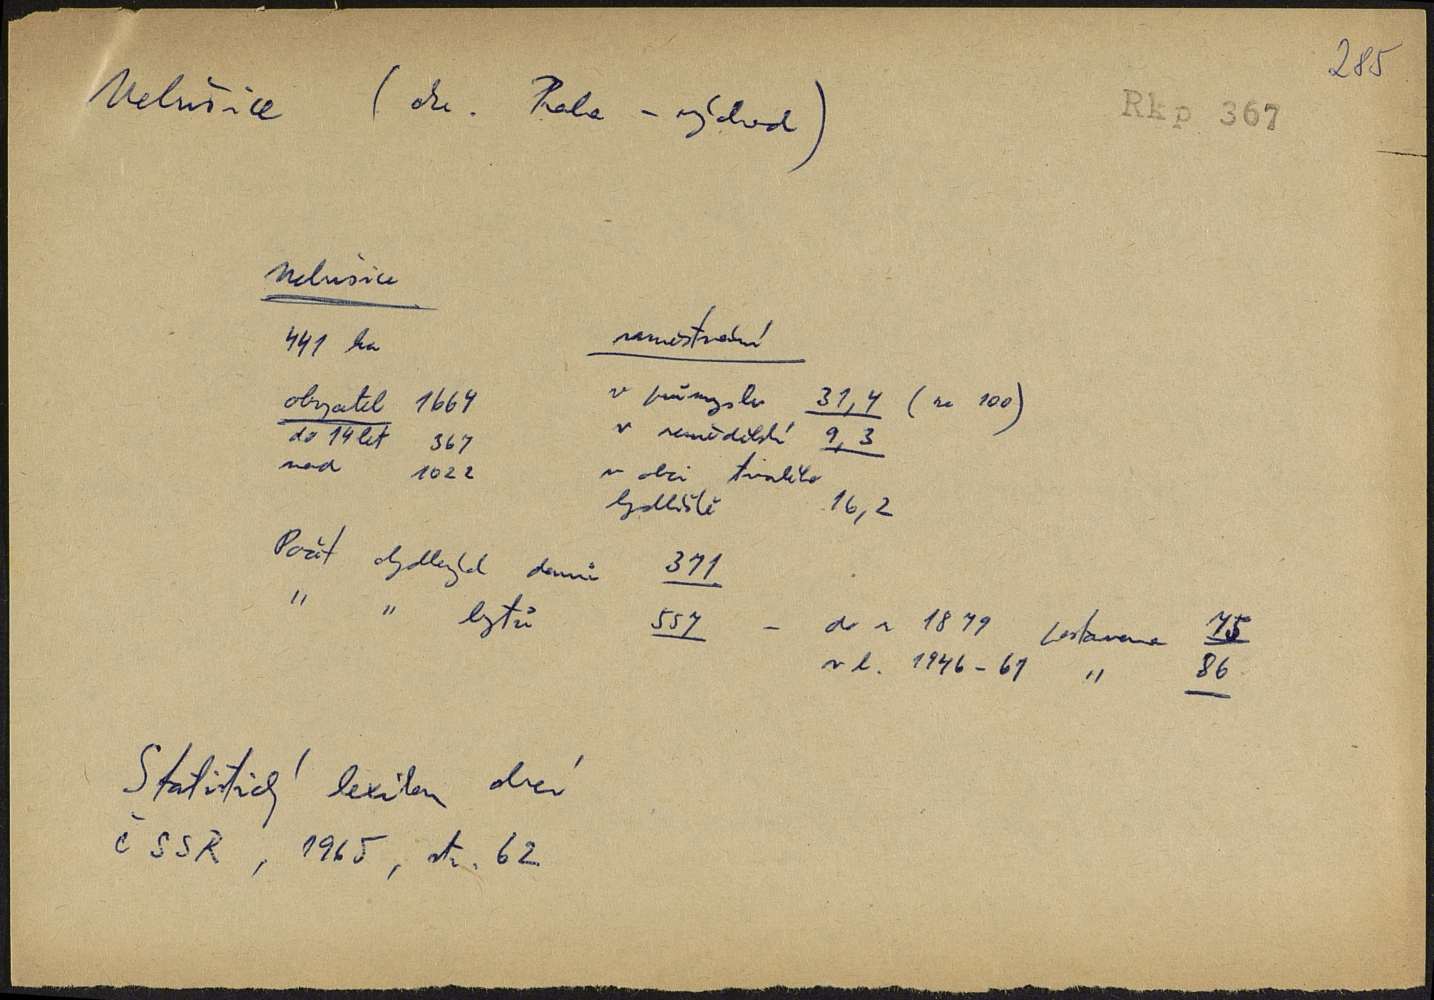 285
Rkp 367
Nebušice (okr. Praha - východ)
Nebušice
441 ha
zaměstnání
obyvatel 1664
v průmyslu 31,4 (ze 100)
do 14 let 367
v zemědělství 9,3
nad 1022
v obci trvalého
bydliště 16,2
Počet obydlených domů 371
" " bytů 557 - do r 1879 postaveno 75
v l. 1946-61 " 86
Statistický lexikon obcí
ČSSR, 1965, str. 62